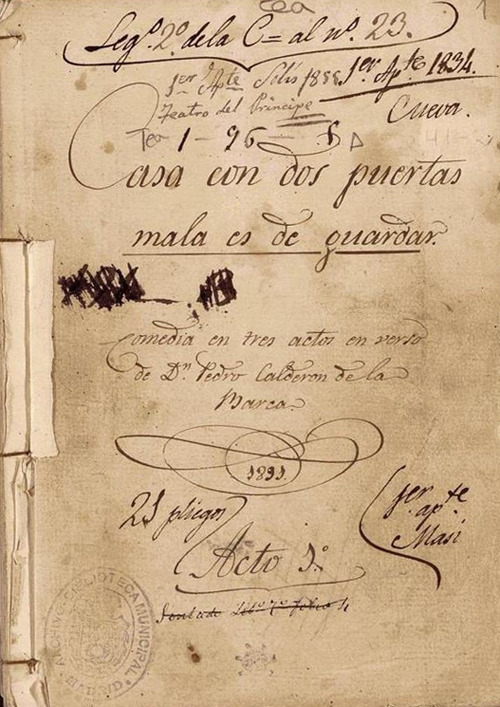 Tea
1
Leg.º 2.º de la C= al nº. 23.
1er Apte Solís 1855. 1er Apte 1834.
Teatro del Príncipe
Cueva.
Tea 1-96-
Casa con dos puertas
mala es de guardar.
Comedia en tres actos en verso
de Dn. Pedro Calderon de la
Barca.
21 pliegos
1er
apte
Masi
Acto 1.º
ARCHIVO BIBLIOTECA MUNICIPAL
MADRID